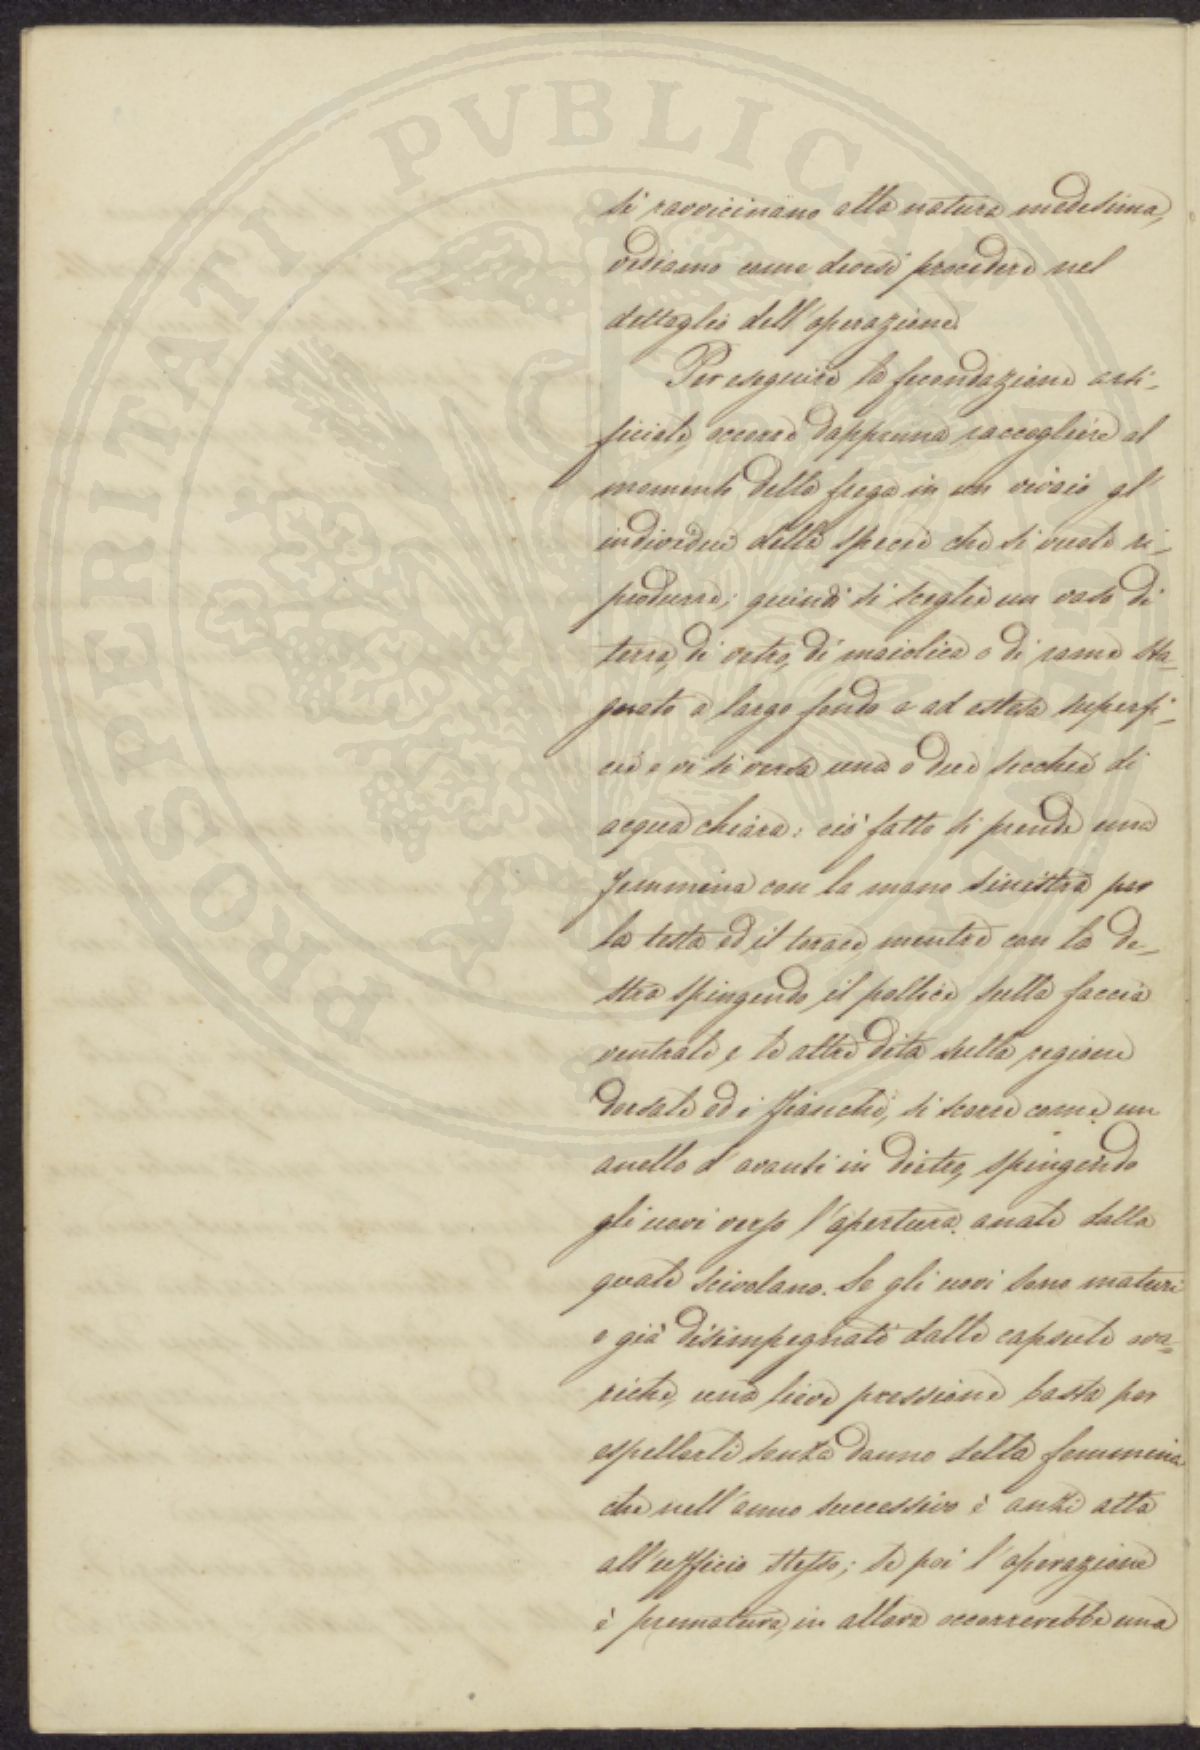 PROSPERITATI PVBLICAE
si ravvicinano alla natura medesima,
vediamo come devesi procedere nel
dettaglio dell'operazione.
Per eseguire la fecondazione arti-
ficiale, occorre dapprima raccogliere al
momento della frega in un vivaio gl'
individui della specie che si vuole ri-
produrre; quindi si sceglie un vaso di
terra, di vetro, di maiolica o di rame sta-
gnato a largo fondo e ad estesa superfi-
cie e vi si versa una o due secchie di
acqua chiara: ciò fatto si prende una
femmina con la mano sinistra per
la testa ed il torace, mentre con la de-
stra spingendo il pollice sulla faccia
ventrale, e le altre dita sulla regione
dorsale ed i fianchi, si scorre come un
anello d'avanti in dietro, spingendo
gli uovi verso l'apertura anale dalla
quale scivolano. Se gli uovi sono maturi
e già disimpegnati dalle capsule ova-
riche, una lieve pressione basta per
espellerli senza danno della femmina
che nell'anno successivo è anzi atta
all'ufficio stesso; se poi l'operazione
è prematura, in allora occorrerebbe una